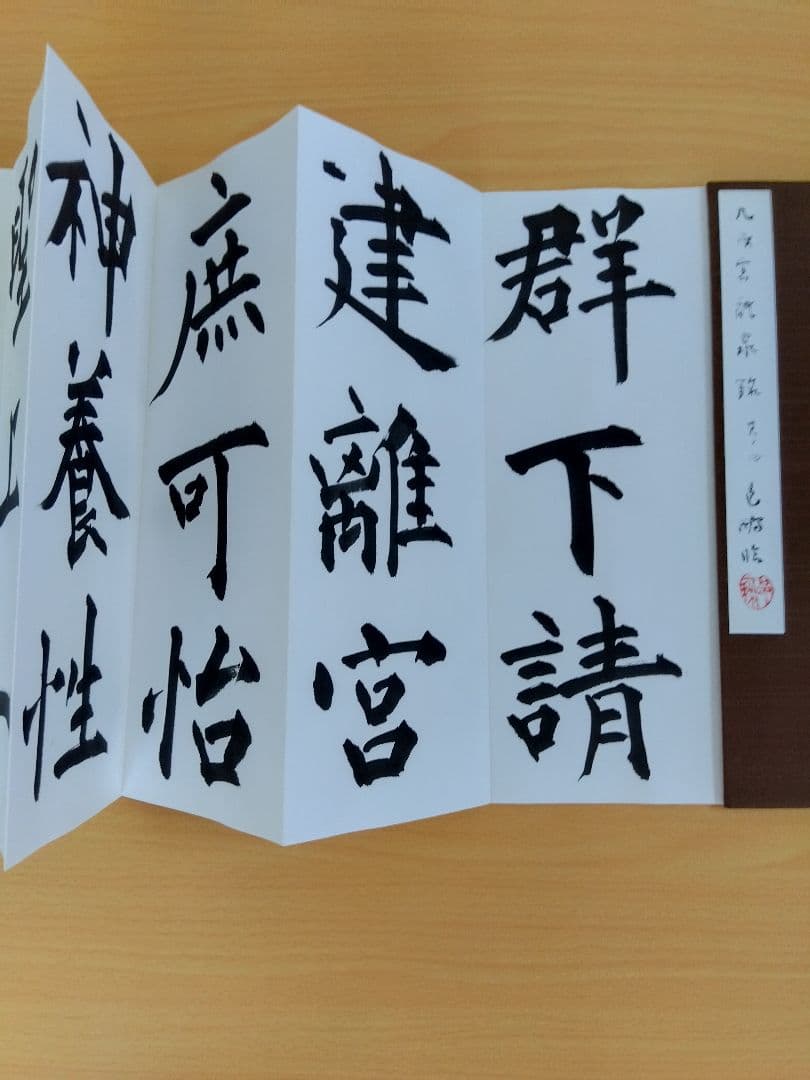 九成宮醴泉銘
群下請
建離宮
庶可怡
神養性
聖上